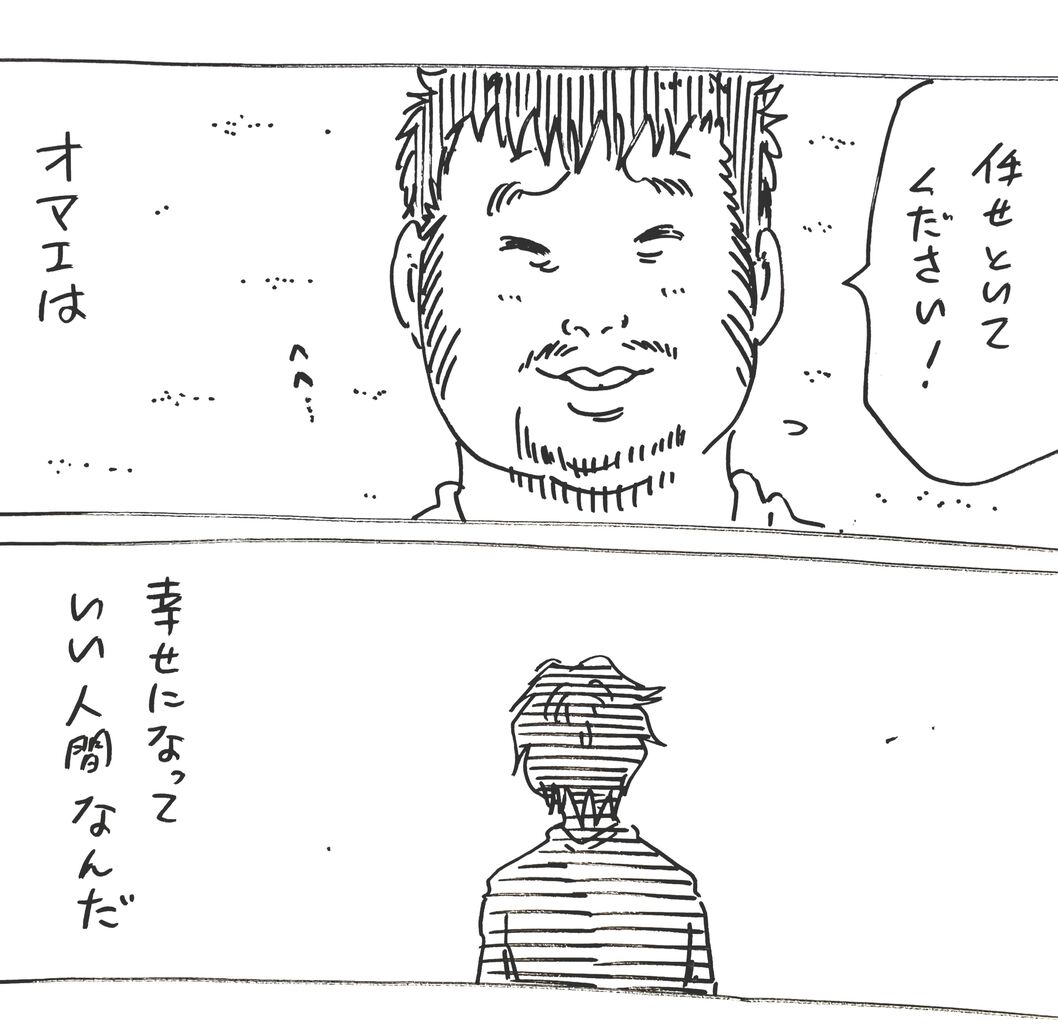 任せといて
ください!
オマエは
幸せになって
いい人間なんだ